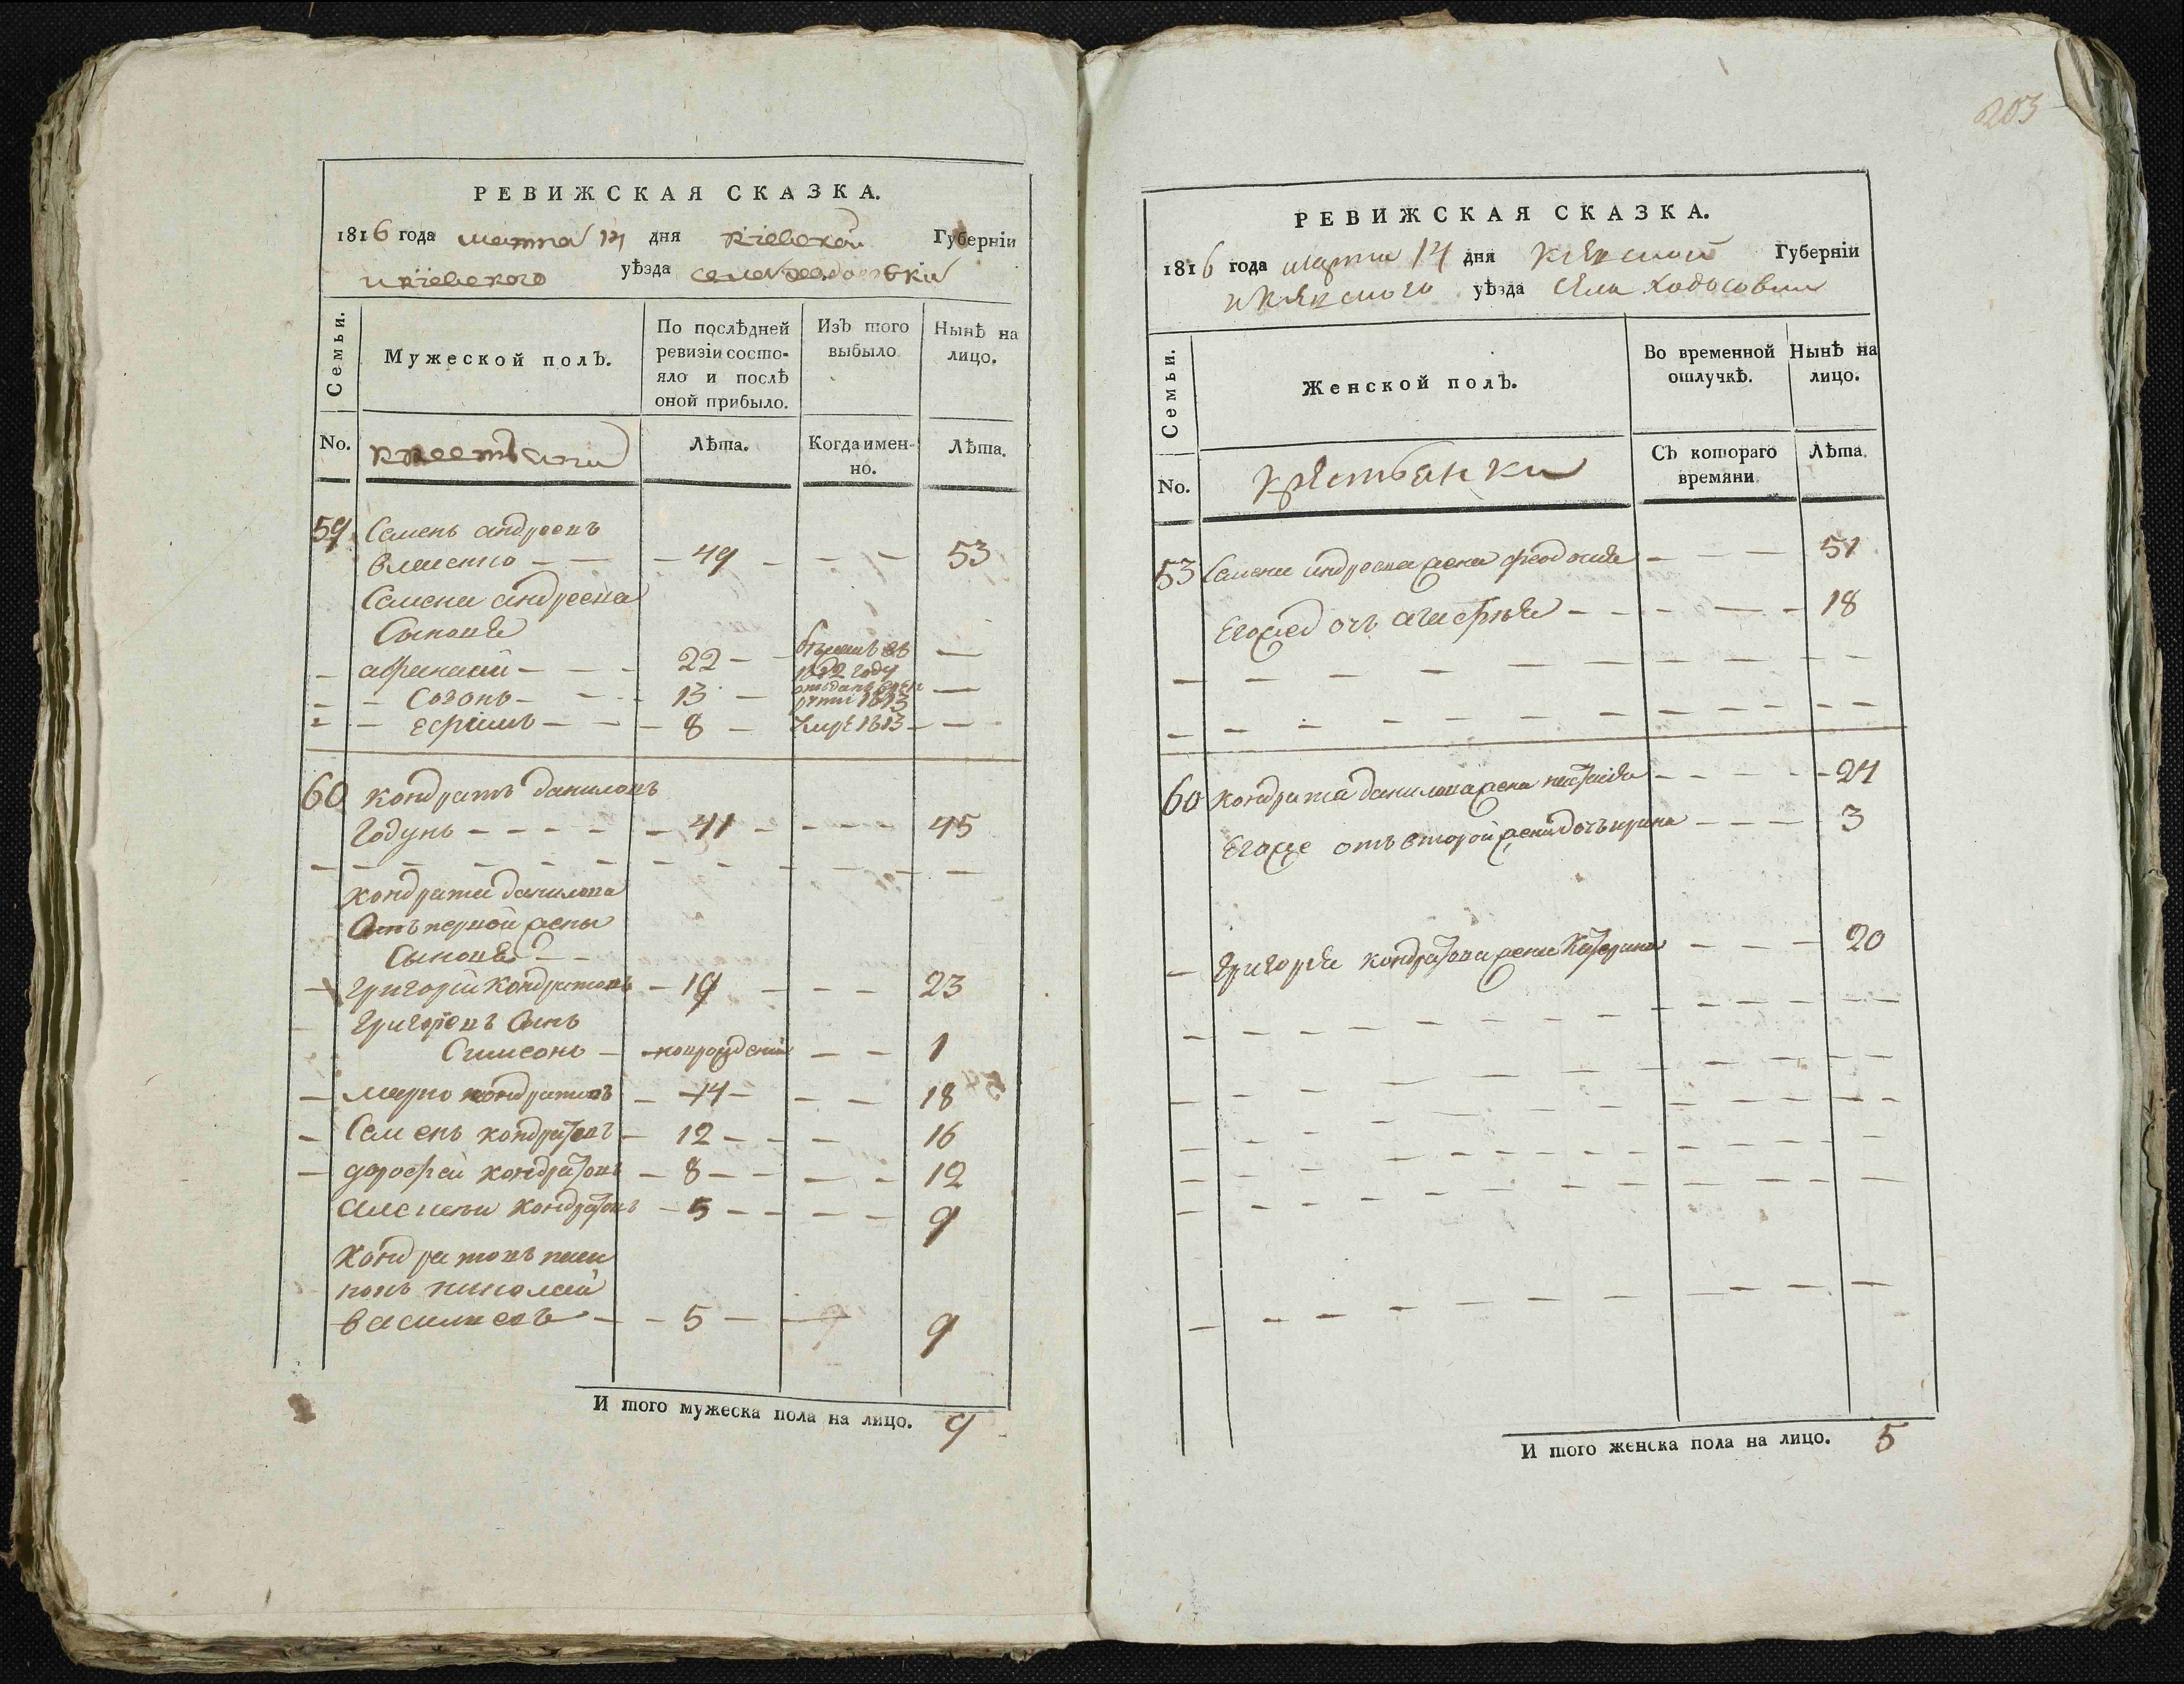 РЕВИЖСКАЯ СКАЗКА.
1816 года марта 14 дня киевской Губерніи
и киевского уѣзда села
Семьи.
Мужеской полъ.
По послѣдней ревизіи состояло и послѣ оной прибыло.
Изъ того выбыло
Нынѣ на лицо.
No.
крестьяни
Лѣта.
Когда именно.
Лѣта.
59 Семенъ андреевъ
власенко — 49 — 53
Семена андреева
Сыновья
афанасий — 22 — в 1812 году —
Созонъ — 13 — отъданъ врек
руты 1813 —
Ефимъ — 8 — 1813 —
60 кондратъ даниловъ
Годунъ — 41 — 45
кондрата данилова
Отъ первой жены
Сыновья
Григорій кондратовъ — 19 — 23
Григорьевъ Сынъ
Симеонъ — новорожденый — 1
марко кондратовъ — 14 — 18
Семенъ кондратовъ — 12 — 16
дорофей кондратовъ — 8 — 12
алексей кондратовъ — 5 — 9
кондратовъ
николай
васильевъ — 5 — 9
И того мужеска пола на лицо. 9
203
РЕВИЖСКАЯ СКАЗКА.
1816 года марта 14 дня киевской Губерніи
и киевского уѣзда села ходосовки
Семьи.
Женской полъ.
Во временной отлучкѣ.
Нынѣ на лицо.
No.
крестьянки
Съ котораго времяни
Лѣта.
53 Семена андреева жена феодосия — 51
Егожед очь агафия — 18
60 кондрата данилова жена настасия — 24
Егоже отъ второй жены дочь ирина — 3
— Григория кондратова жена Катерина — 20
И того женска пола на лицо. 5